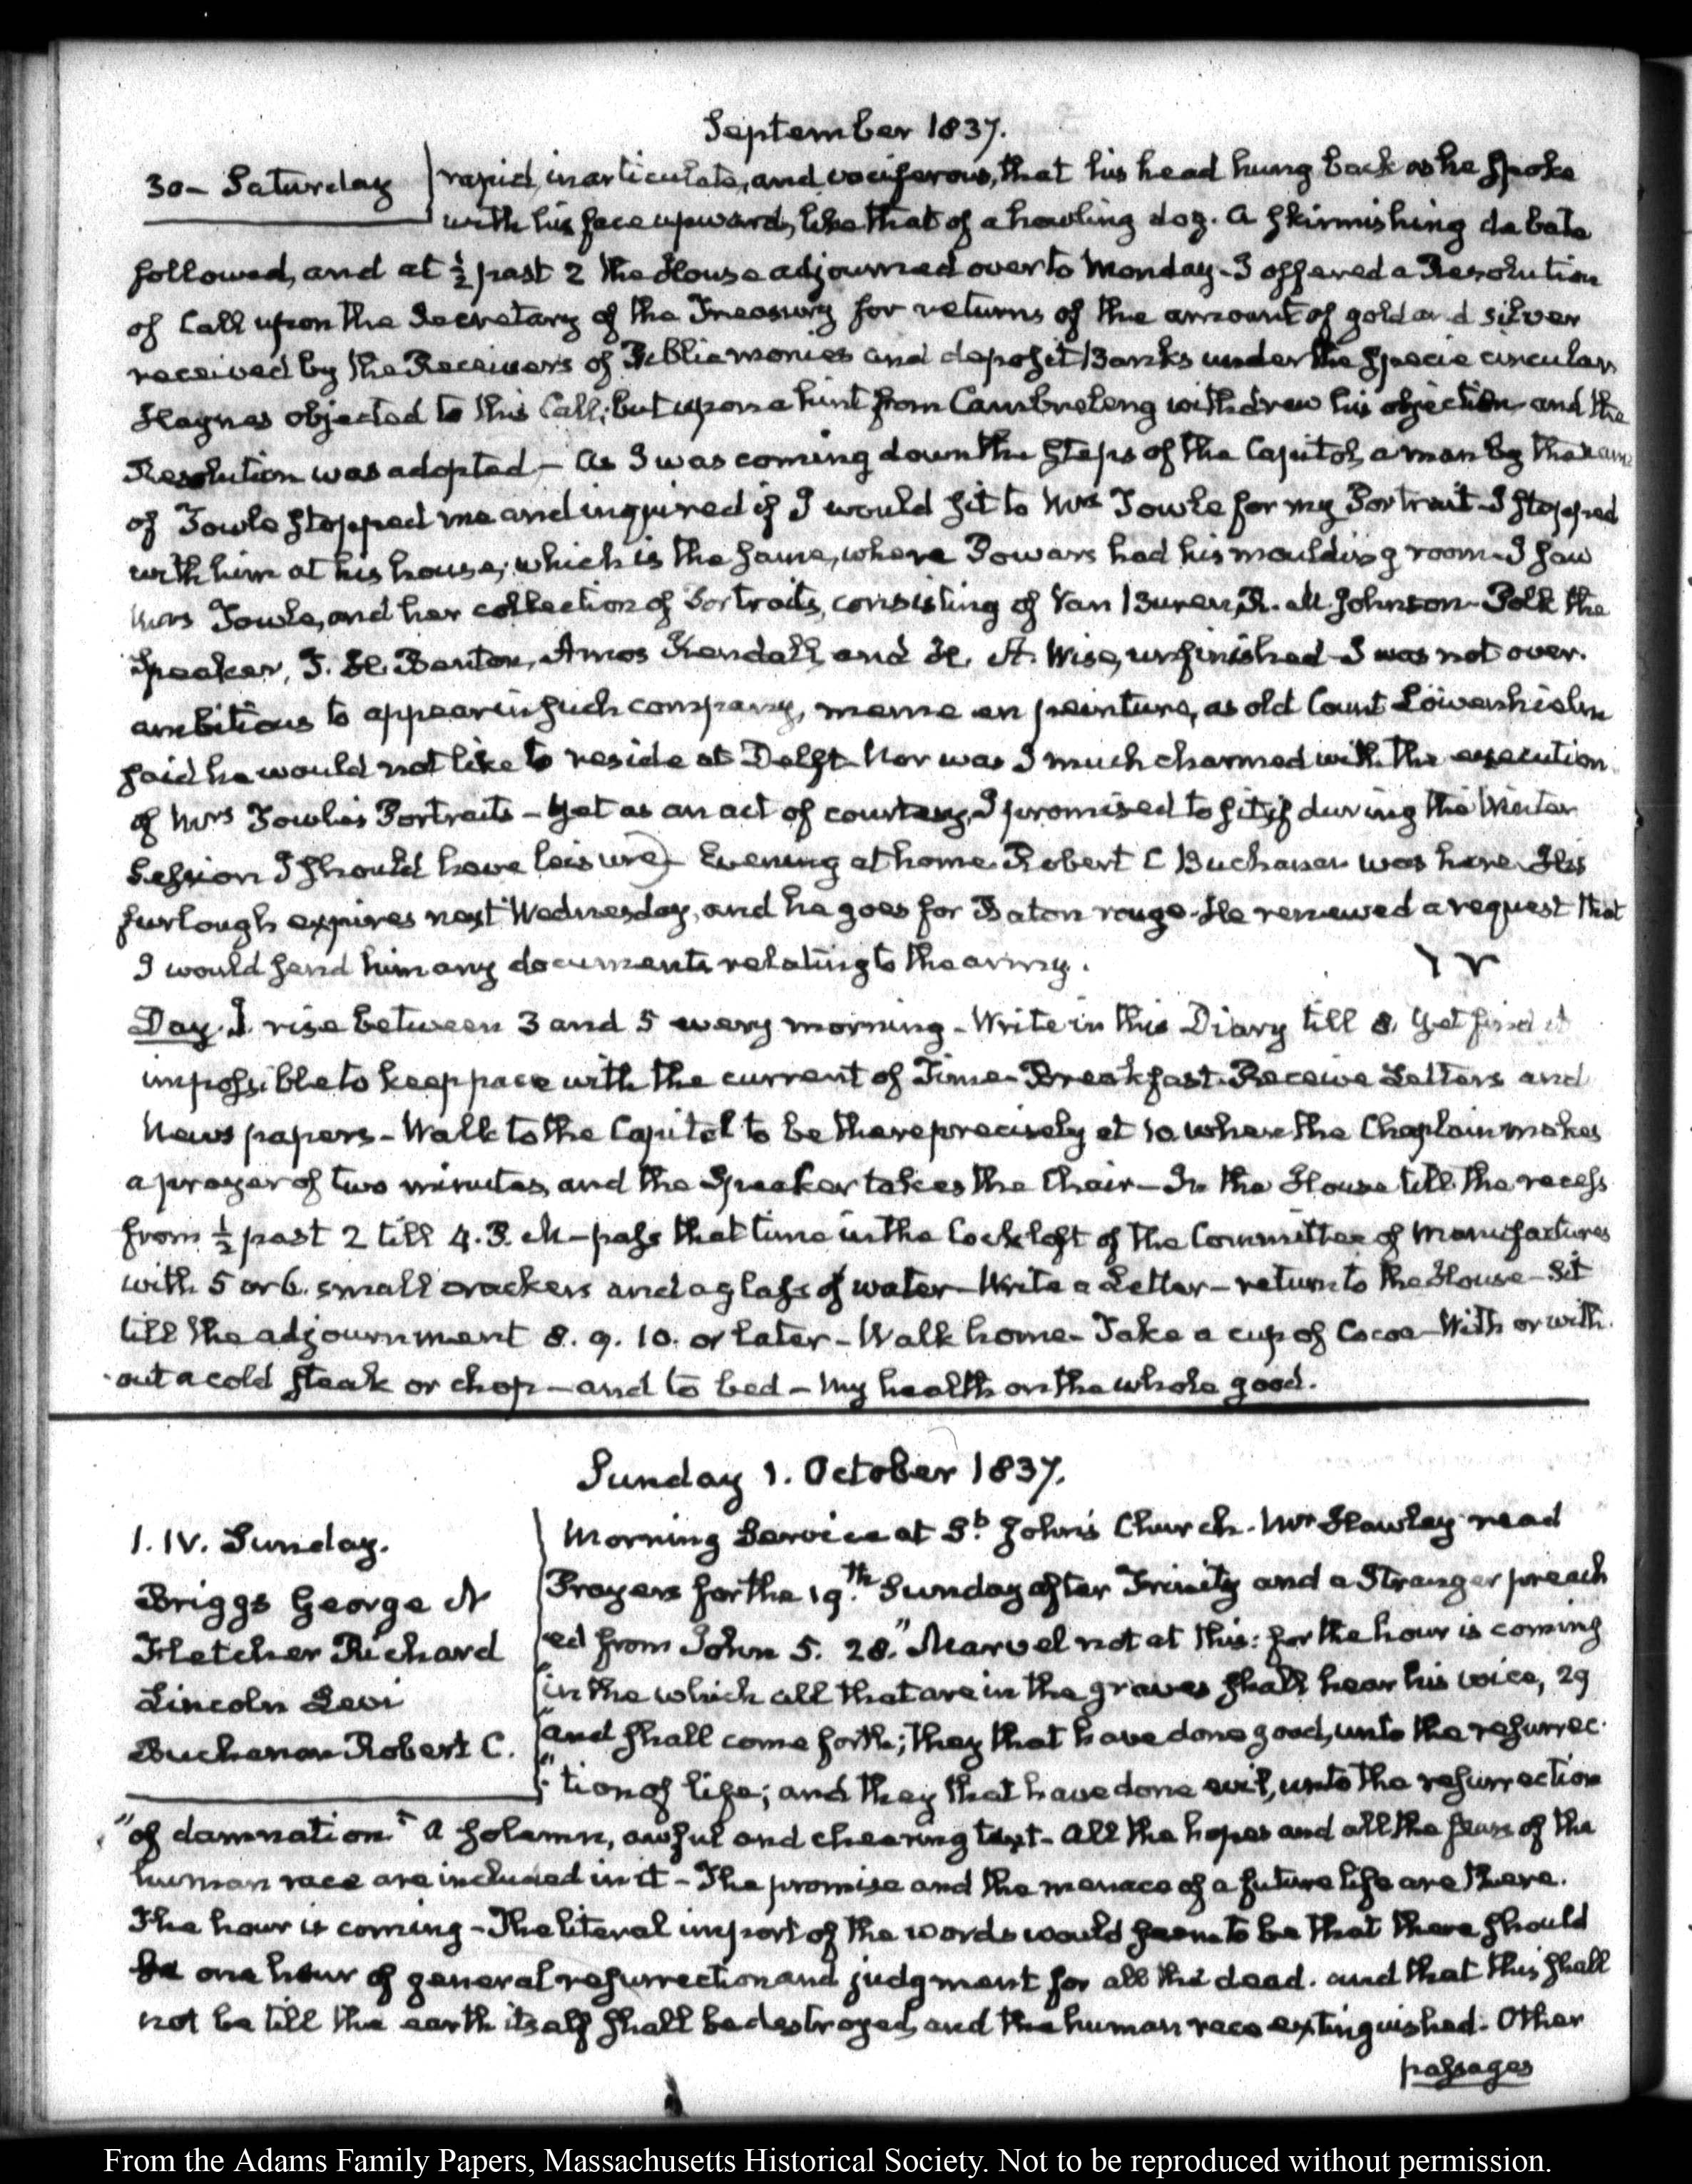 September 1837.
30 - Saturday
rapid, inarticulate, and vociferous, that his head hung back as he spoke
with his face upward, like that of a howling dog. A skirmishing debate
followed, and at ½ past 2 the House adjourned over to Monday - I offered a Resolution
of Call upon the Secretary of the Treasury for returns of the amount of gold and silver
received by the Receivers of Public monies and deposit Banks under the Specie circular
Haynes objected to this Call; but upon a hint from Cambreleng withdrew his objection and the
Resolution was adopted - As I was coming down the steps of the Capitol, a man by the name
of Towle stopped me and inquired if I would sit to Mrs Towle for my Portrait - I stopped
with him at his house, which is the same, where Powers had his moulding room - I saw
Mrs Towle, and her collection of Portraits, consisting of Van Buren, R. M. Johnson - Polk the
Speaker, T. H. Benton, Amos Kendall, and H. A. Wise, unfinished - I was not over-
ambitious to appear in such company, meme en peinture, as old Count Löwenhielm
said he would not like to reside at Delft - Nor was I much charmed with the execution
of Mrs Towle's Portraits - yet as an act of courtesy, I promised to sit, if during the Winter
Session I should have leisure - Evening at home. Robert C Buchanan was here - His
furlough expires next Wednesday, and he goes for Baton rouge - He renewed a request that
I would send him any documents relating to the army.
Day. I rise between 3 and 5 every morning - Write in this Diary till 8. Yet find it
impossible to keep pace with the current of Time - Breakfast - Receive Letters and
News papers - Walk to the Capitol to be there precisely at 10 when the Chaplain makes
a prayer of two minutes, and the Speaker takes the Chair - In the House till the recess
from ½ past 2 till 4. P. M - pass that time in the Cockloft of the Committee of Manufactures
with 5 or 6. small crackers and a glass of water - Write a Letter - return to the House - Sit
till the adjournment 8. 9. 10. or later - Walk home - Take a cup of Cocoa - With or with-
out a cold steak or chop - and to bed - My health on the whole good.
Sunday 1. October 1837.
1. IV. Sunday.
Briggs George N
Fletcher Richard
Lincoln Levi
Buchanan Robert C.
Morning Service at St. John's Church. Mr Hawley read
Prayers for the 19th. Sunday after Trinity and a Stranger preach
ed from John 5. 28. "Marvel not at this: for the hour is coming
"in the which all that are in the graves shall hear his voice, 29
"and shall come forth; they that have done good, unto the resurrec-
"tion of life; and they that have done evil, unto the resurrection
"of damnation." A solemn, awful and cheering text - All the hopes and all the fears of the
human race are included in it - The promise and the menace of a future life are there.
The hour is coming - The literal import of the words would seem to be that there should
be one hour of general resurrection and judgment for all the dead. and that this shall
not be till the earth itself shall be destroyed, and the human race extinguished. Other
passages
From the Adams Family Papers, Massachusetts Historical Society. Not to be reproduced without permission.